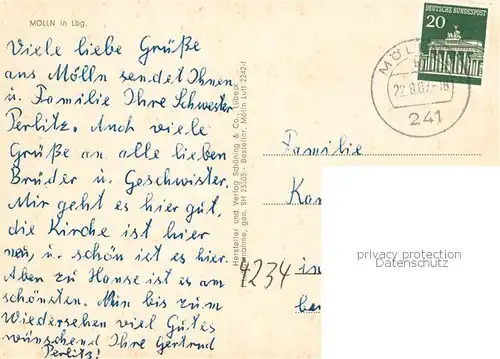 MÖLLN in Lbg.
Viele liebe Grüße
aus Mölln sendet Ihnen
u. Familie Ihre Schwester
Perlitz. Auch viele
Grüße an alle lieben
Brüder u. Geschwister.
Mir geht es hier gut,
die Kirche ist hier
neu, u. schön ist es hier.
Aber zu Hause ist es am
schönsten. Nun bis zum
Wiedersehen viel Gutes
wünschend Ihre Gertrud
Perlitz!
Hersteller und Verlag Schöning & Co., Lübeck
gen. SH 23303 - Bestellnr. Mölln Luft 2242-1
DEUTSCHE BUNDESPOST
20
MÖLL
241
Familie
4234
privacy protection
Datenschutz